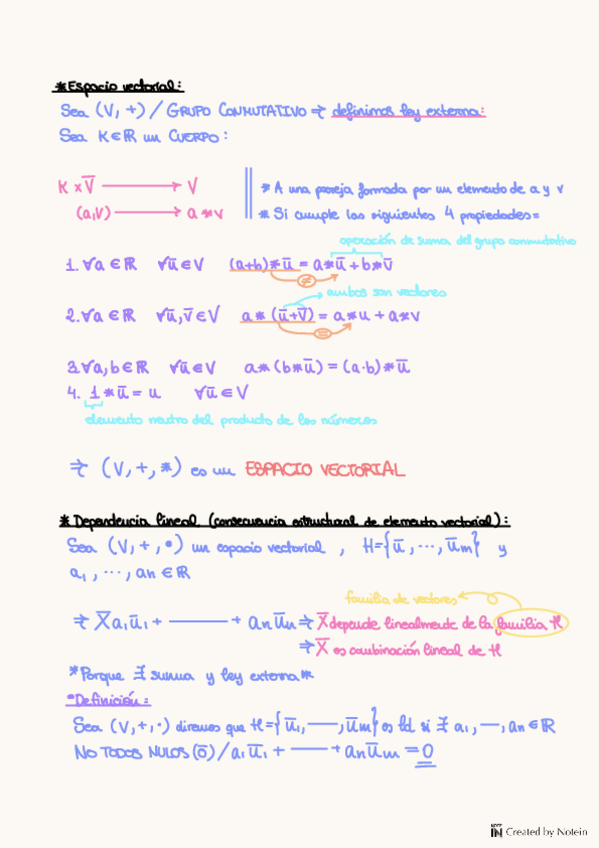 *Espacio vectorial:
Sea (V,+) / GRUPO CONMUTATIVO ⇒ definimos ley externa:
Sea K∈ℝ un CUERPO:
K x V̅ ⟶ V
(a,V) ⟶ a*v
* A una pareja formada por un elemento de a y v
* Si cumple las siguientes 4 propiedades=
operación de suma del grupo conmutativo
1. ∀a∈ℝ ∀u̅∈V (a+b)*u̅ = a*u̅+b*v̅
≠
ambos son vectores
2. ∀a∈ℝ ∀u̅,v̅∈V a*(u̅+v̅) = a*u + a*v
=
3. ∀a,b∈ℝ ∀u̅∈V a*(b*u̅)=(a·b)*u̅
4. 1*u̅ = u ∀u̅∈V
elemento neutro del producto de los números
⇒ (V,+,*) es un ESPACIO VECTORIAL
* Dependencia lineal (consecuencia estructural de elemento vectorial):
Sea (V,+,•) un espacio vectorial , H={u̅,···,u̅m} y
a₁,···,an∈ℝ
familia de vectores
⇒ X̅ a₁u̅₁ + —— + anu̅n ⇒ X̅ depende linealmente de la familia H
⇒ X̅ es combinación lineal de H
*Porque ∃ suma y ley externa*
*Definición:
Sea (V,+,·) diremos que H={u̅₁,——,u̅m} es ld si ∃ a₁,—,an∈ℝ
NO TODOS NULOS (0̅) / a₁u̅₁ + —— + anu̅m = 0
NOTE IN Created by Notein